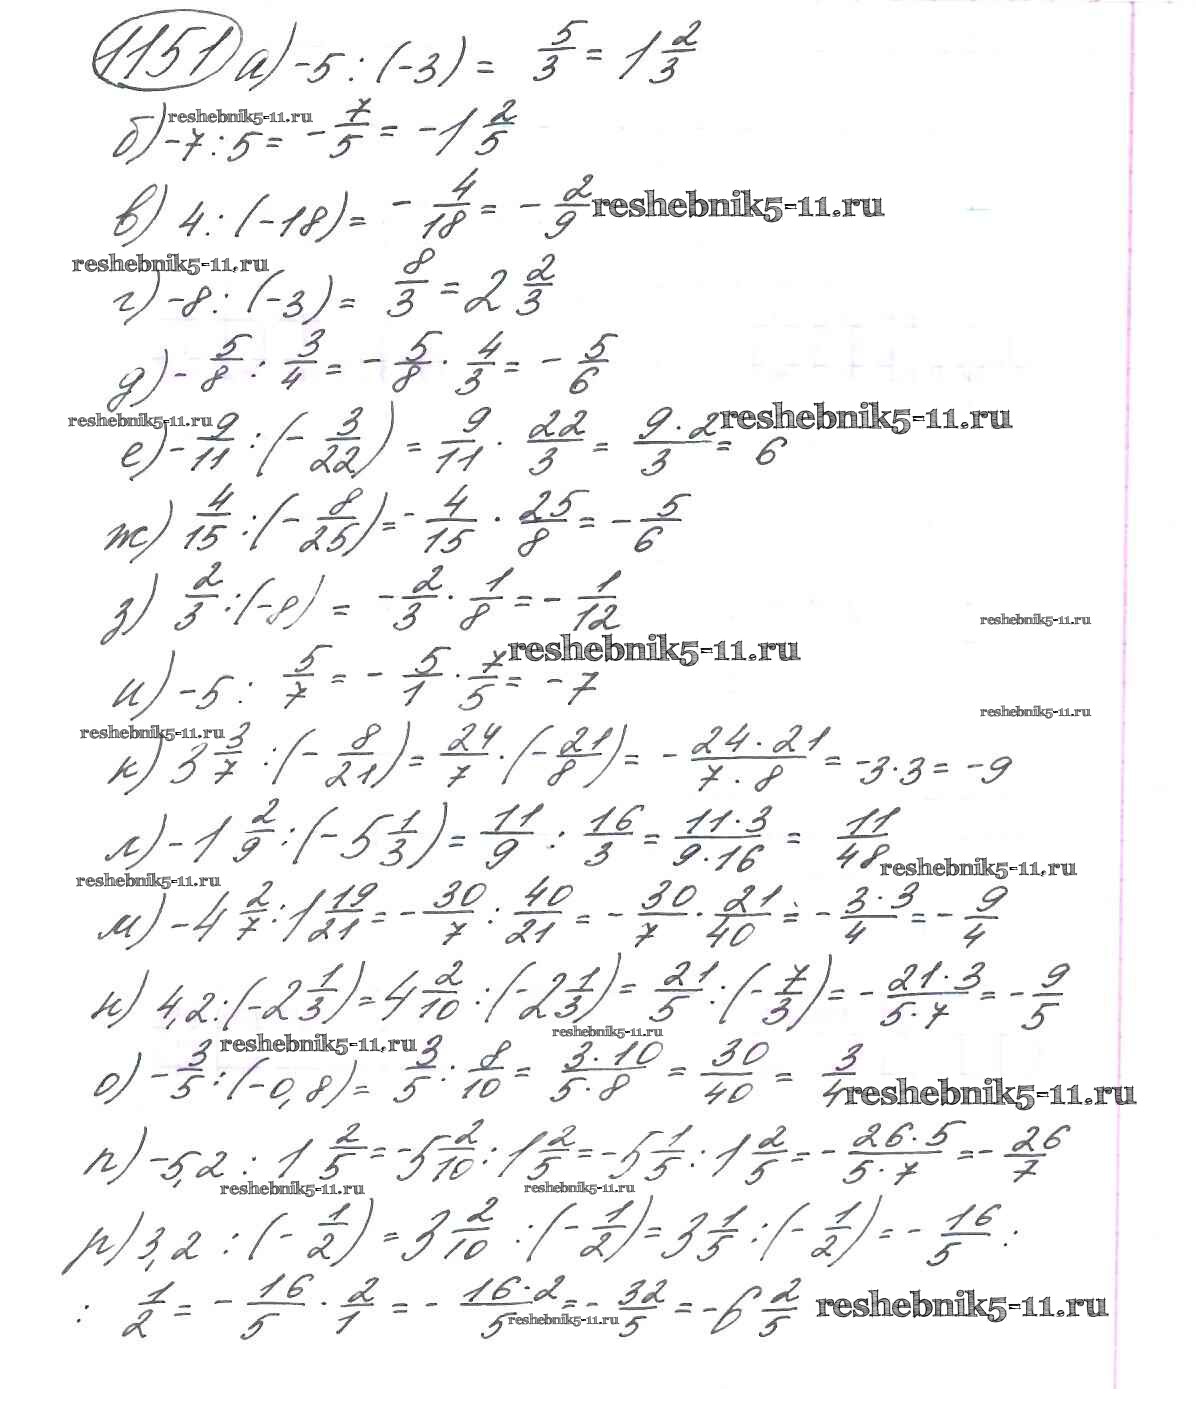 1151 а) -5 : (-3) = 5/3 = 1 2/3
reshebnik5-11.ru
б) -7 : 5 = - 7/5 = -1 2/5
в) 4 : (-18) = - 4/18 = - 2/9 reshebnik5-11.ru
reshebnik5-11.ru
г) -8 : (-3) = 8/3 = 2 2/3
д) - 5/8 : 3/4 = - 5/8 · 4/3 = - 5/6
reshebnik5-11.ru reshebnik5-11.ru
е) - 9/11 : (- 3/22) = 9/11 · 22/3 = 9·2/3 = 6
ж) 4/15 : (- 8/25) = - 4/15 · 25/8 = - 5/6
з) 2/3 : (-8) = - 2/3 · 1/8 = - 1/12
reshebnik5-11.ru
reshebnik5-11.ru
и) -5 : 5/7 = - 5/1 · 7/5 = -7
reshebnik5-11.ru
reshebnik5-11.ru
к) 3 3/7 : (- 8/21) = 24/7 · (- 21/8) = - 24·21/7·8 = -3·3 = -9
л) -1 2/9 : (-5 1/3) = 11/9 : 16/3 = 11·3/9·16 = 11/48
reshebnik5-11.ru reshebnik5-11.ru
м) -4 2/7 : 1 19/21 = - 30/7 : 40/21 = - 30/7 · 21/40 = - 3·3/4 = - 9/4
н) 4,2 : (-2 1/3) = 4 2/10 : (-2 1/3) = 21/5 : (- 7/3) = - 21·3/5·7 = - 9/5
reshebnik5-11.ru reshebnik5-11.ru
о) - 3/5 : (-0,8) = 3/5 : 8/10 = 3·10/5·8 = 30/40 = 3/4
reshebnik5-11.ru
п) -5,2 : 1 2/5 = -5 2/10 : 1 2/5 = -5 1/5 : 1 2/5 = - 26·5/5·7 = - 26/7
reshebnik5-11.ru reshebnik5-11.ru
р) 3,2 : (- 1/2) = 3 2/10 : (- 1/2) = 3 1/5 : (- 1/2) = - 16/5 :
: 1/2 = - 16/5 · 2/1 = - 16·2/5 = - 32/5 = -6 2/5 reshebnik5-11.ru
reshebnik5-11.ru